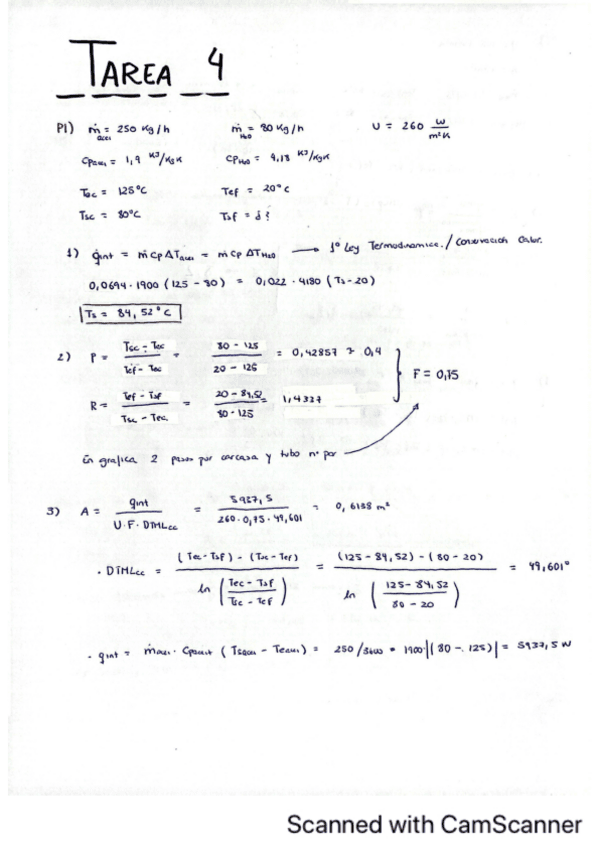 TAREA 4
P1) ṁ aceite = 250 Kg/h ṁ H2O = 80 Kg/h U = 260 W/m²K
Cp aceite = 1,9 KJ/KgK CP H2O = 4,18 KJ/KgK
Tec = 125°C Tef = 20°C
Tsc = 80°C Tsf = ¿?
1) q̇int = ṁ Cp ΔT aceite = ṁ Cp ΔT H2O → 1º Ley Termodinamica / Conservación Calor.
0,0694 · 1900 (125 - 80) = 0,022 · 4180 (Ts - 20)
Ts = 84,52°C
2) P = (Tsc - Tec)/(Tef - Tec) = (80 - 125)/(20 - 125) = 0,42857 ≈ 0,4
F = 0,75
R = (Tef - Tsf)/(Tsc - Tec) = (20 - 84,52)/(80 - 125) = 1,4337
En grafica 2 pasos por carcasa y tubo nº par
3) A = qint/(U · F · DTMLcc) = 5937,5/(260 · 0,75 · 49,601) = 0,6138 m²
· DTMLcc = ((Tec - Tsf) - (Tsc - Tef))/ln((Tec - Tsf)/(Tsc - Tef)) = ((125 - 84,52) - (80 - 20))/ln((125 - 84,52)/(80 - 20)) = 49,601°
· qint = ṁ · Cp (Ts - Te) = 250/3600 · 1900 |(80 - 125)| = 5937,5 W
Scanned with CamScanner